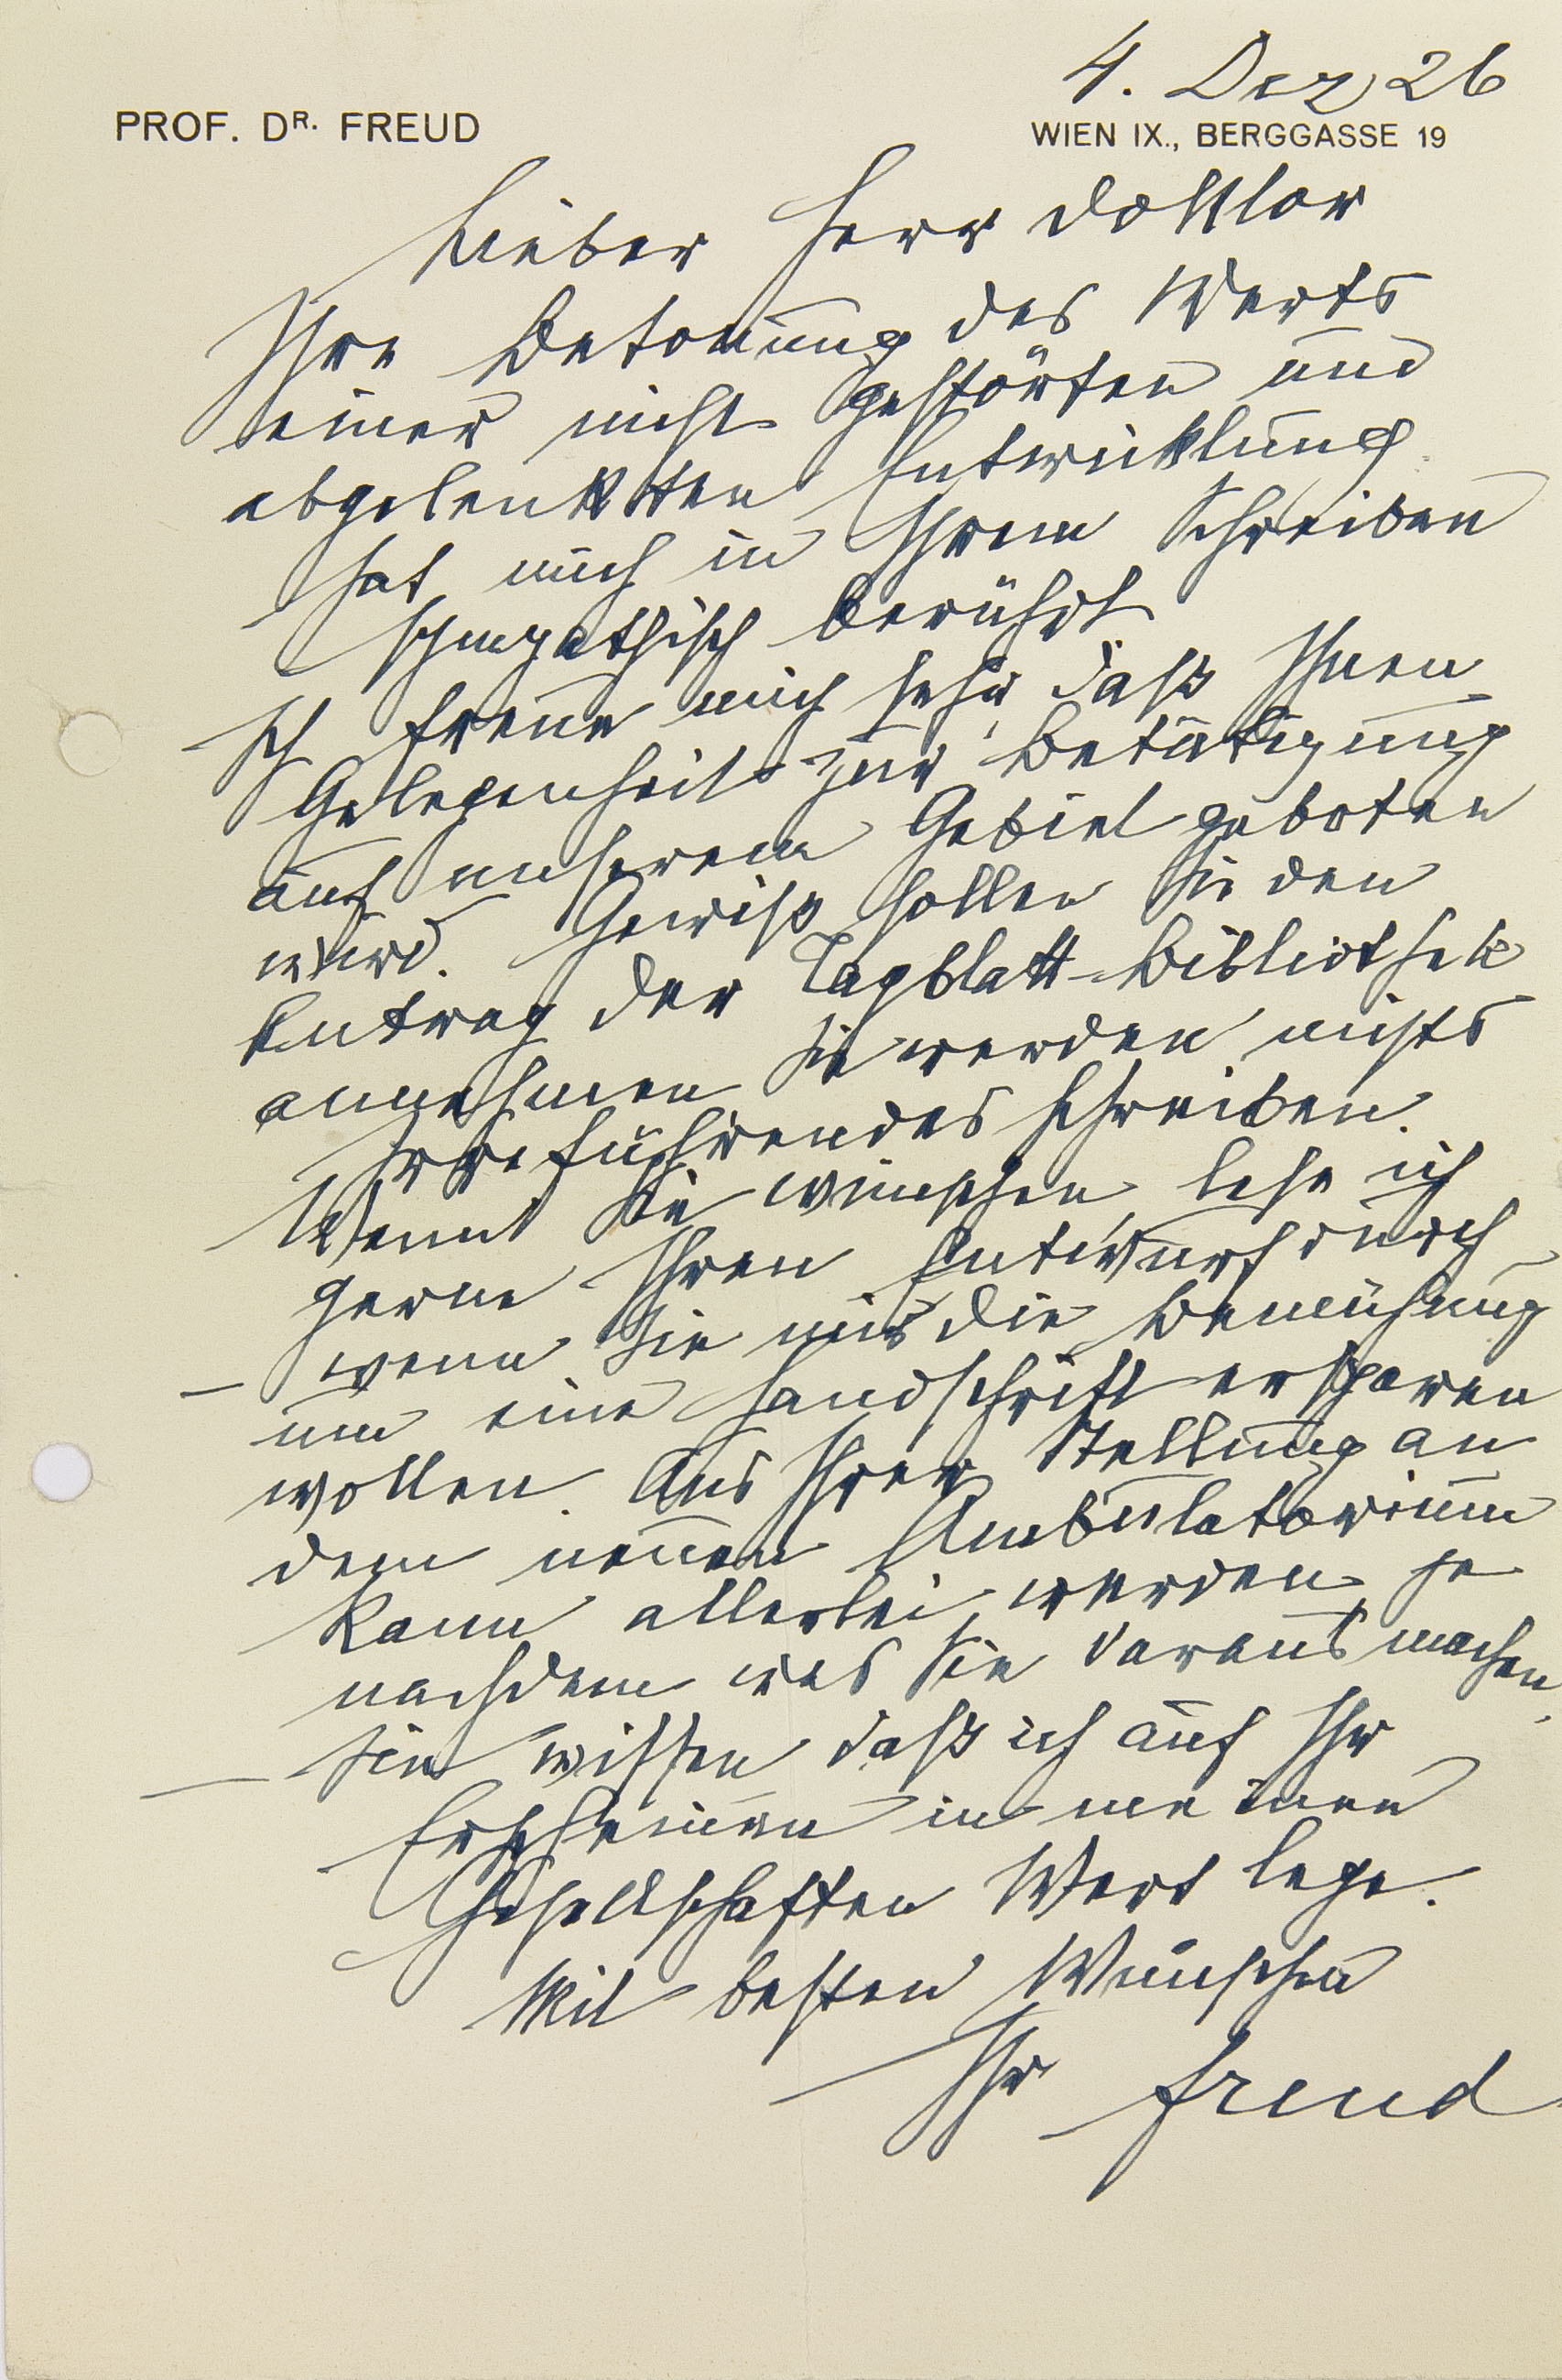 4. Dez 26
PROF. DR. FREUD
WIEN IX., BERGGASSE 19
Lieber Herr Doktor
Ihre Betonung des Werts
einer nicht gestörten und
abgelenkten Entwicklung
hat mich in Ihrem Schreiben
sympathisch berührt
Ich freue mich sehr, daß Ihnen
Gelegenheit zur Betätigung
auf unserem Gebiet geboten
wird. Gewiß sollen Sie den
Antrag der Tagblatt-Bibliothek
annehmen Sie werden nichts
Irreführendes schreiben.
Wenn Sie wünschen, lese ich
gerne Ihren Entwurf durch
wenn Sie mir die Bemühung
um eine Handschrift ersparen
wollen. Aus Ihrer Stellung an
dem neuen Ambulatorium
kann allerlei werden, je
nachdem was Sie daraus machen.
Sie wissen daß ich auf Ihr
Erscheinen in meinen
Gesellschaften Wert lege.
Mit besten Wünschen
Ihr Freud